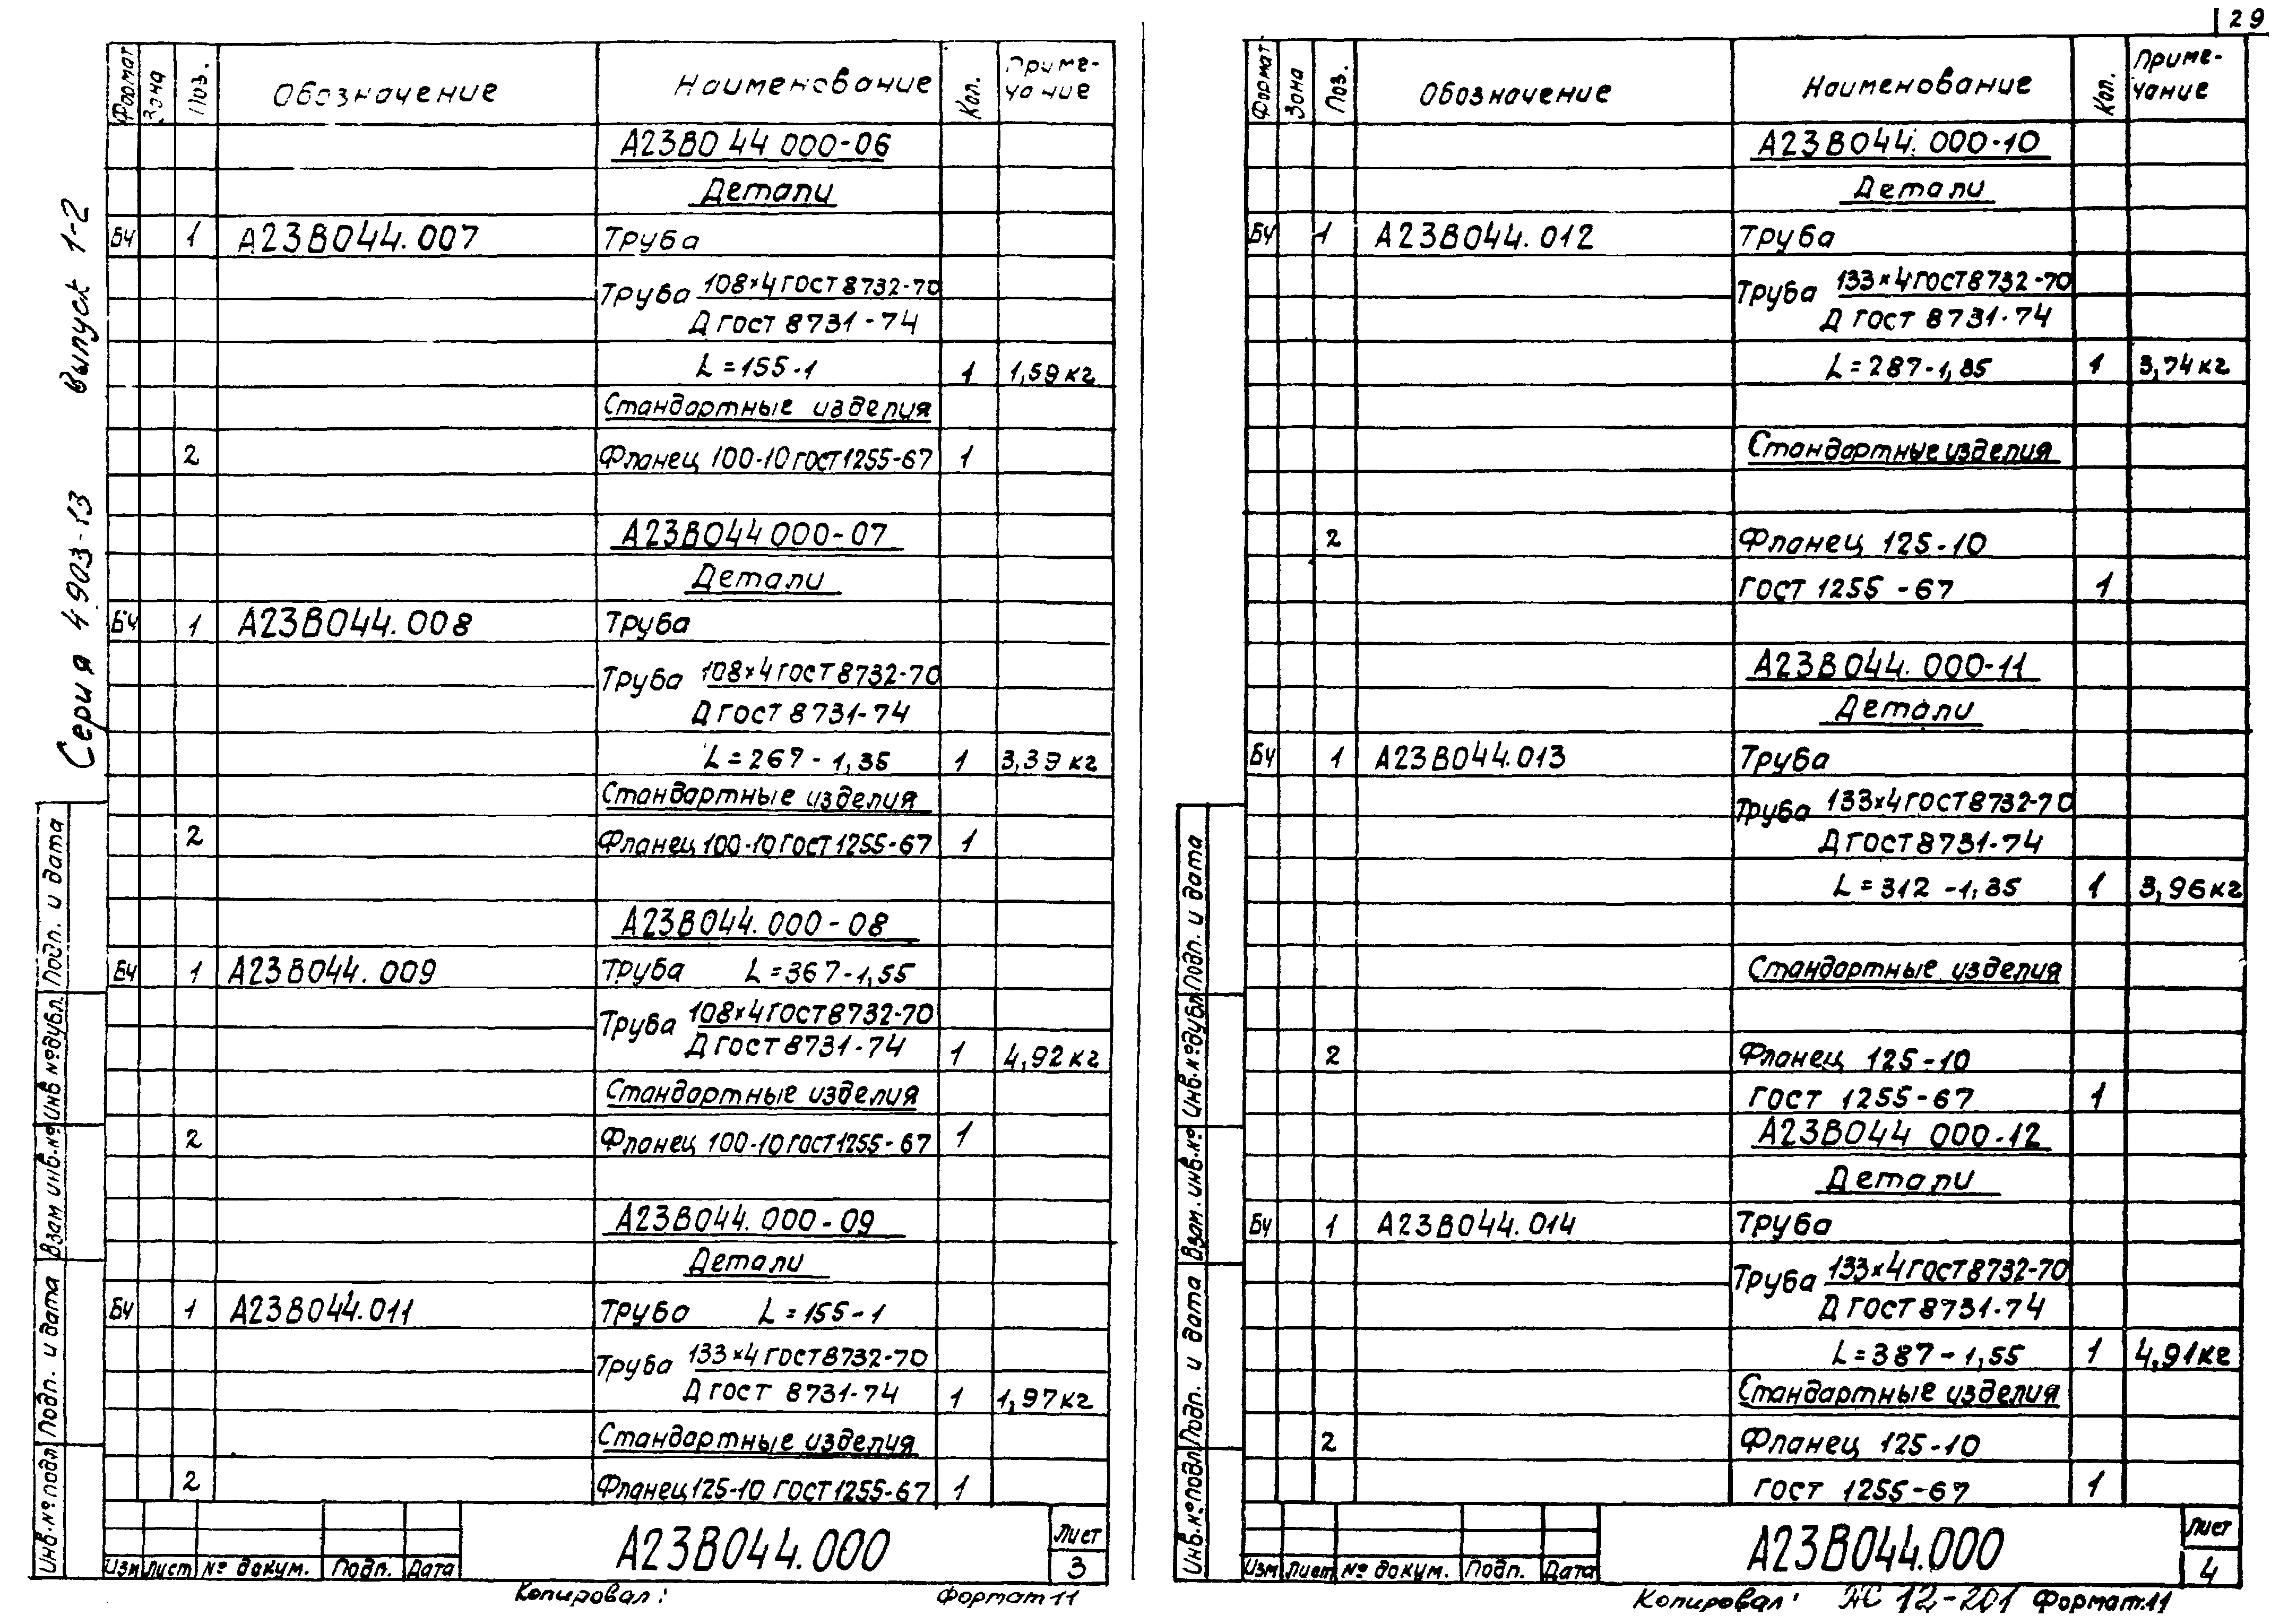 29
Серия 4903-13 Выпуск 1-2
Формат Зона Поз. Обозначение Наименование Кол. Примечание
А23В044 000-06
Детали
БЧ 1 А23В044.007 Труба
Труба 108×4 ГОСТ 8732-70
Д ГОСТ 8731-74
L=155-1 1 1,59 кг
Стандартные изделия
2 Фланец 100-10 ГОСТ 1255-67 1
А23В044 000-07
Детали
БЧ 1 А23В044.008 Труба
Труба 108×4 ГОСТ 8732-70
Д ГОСТ 8731-74
L=267-1,35 1 3,39 кг
Стандартные изделия
2 Фланец 100-10 ГОСТ 1255-67 1
А23В044.000-08
БЧ 1 А23В044.009 Труба L=367-1,55
Труба 108×4 ГОСТ 8732-70
Д ГОСТ 8731-74 1 4,92 кг
Стандартные изделия
2 Фланец 100-10 ГОСТ 1255-67 1
А23В044.000-09
Детали
БЧ 1 А23В044.011 Труба L=155-1
Труба 133×4 ГОСТ 8732-70
Д ГОСТ 8731-74 1 1,97 кг
Стандартные изделия
2 Фланец 125-10 ГОСТ 1255-67 1
Инв.№подл Подп. и дата Взам инв.№ Инв №дубл. Подп. и дата
Изм Лист № докум. Подп. Дата
А23В044.000
Лист
3
Копировал: Формат 11
Формат Зона Поз. Обозначение Наименование Кол. Примечание
А23В044.000-10
Детали
БЧ 1 А23В044.012 Труба
Труба 133×4 ГОСТ 8732-70
Д ГОСТ 8731-74
L=287-1,35 1 3,74 кг
Стандартные изделия
2 Фланец 125-10
ГОСТ 1255-67 1
А23В044.000-11
Детали
БЧ 1 А23В044.013 Труба
Труба 133×4 ГОСТ 8732-70
Д ГОСТ 8731-74
L=312-1,35 1 3,96 кг
Стандартные изделия
2 Фланец 125-10
ГОСТ 1255-67 1
А23В044 000-12
Детали
БЧ 1 А23В044.014 Труба
Труба 133×4 ГОСТ 8732-70
Д ГОСТ 8731-74
L=387-1,55 1 4,91 кг
Стандартные изделия
2 Фланец 125-10
ГОСТ 1255-67 1
Инв.№подл Подп. и дата Взам. инв.№ Инв.№дубл Подп. и дата
Изм Лист № докум. Подп. Дата
А23В044.000
Лист
4
Копировал: 12-201 Формат 11